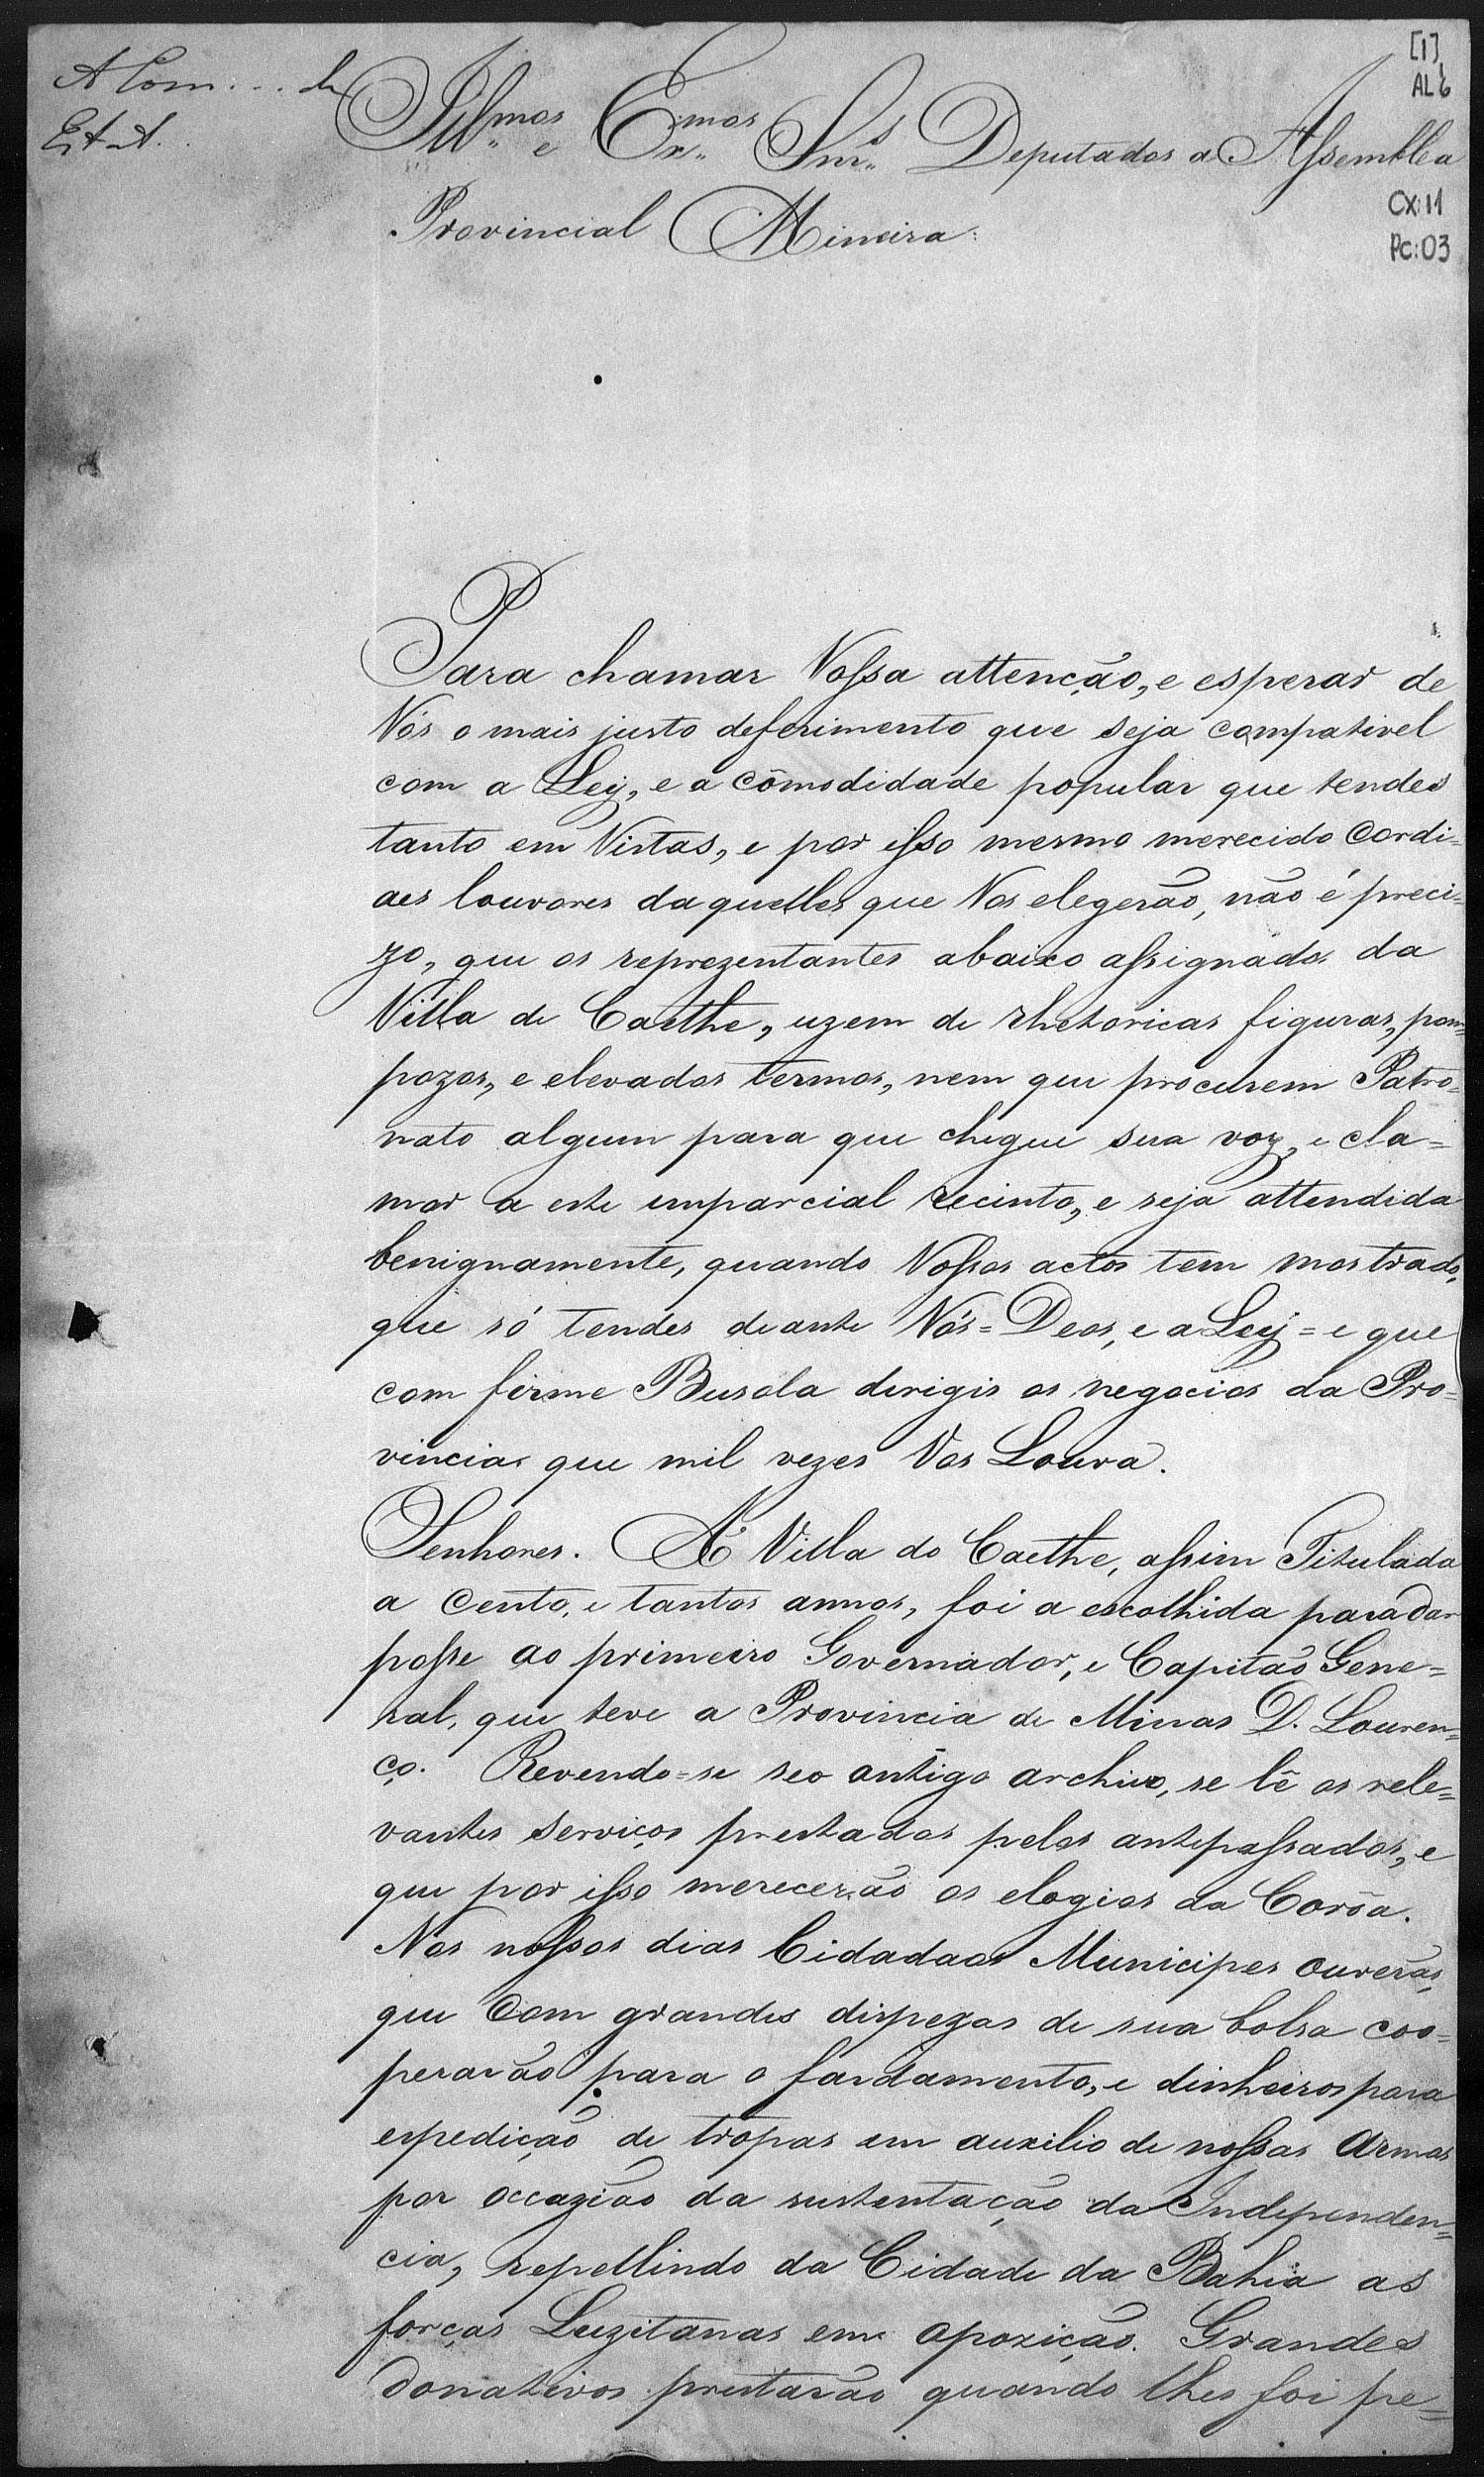 [1]
AL 6
A Com... de
Est.
Ill.mos e Ex.mos Snr.s Deputados a Assemblea
CX:11
Provincial Mineira.
PC:03
Para chamar Vossa attenção, e esperar de
Vós o mais justo deferimento que seja compativel
com a Ley, e a cõmodidade popular que tendes
tanto em Vistas, e por isso mesmo merecido Cordi=
aes louvores daquelles que Vos elegerão, não é preci=
zo, que os reprezentantes abaixo assignados da
Villa de Caethe, uzem de rhetoricas figuras, pom=
pozos, e elevados termos, nem que procurem Patro=
nato algum para que chegue sua voz, e cla=
mor a este imparcial recinto, e seja attendida
benignamente, quando Vossos actos tem mostrado,
que só tendes deante Vós=Deos, e a Ley= e que
com firme Busola dirigis os negocios da Pro=
vincia que mil vezes Vos Louva.
Senhores. A Villa do Caethe, assim Titulada
a Cento, e tantos annos, foi a escolhida para dar
posse ao primeiro Governador, e Capitão Gene=
ral, que teve a Provincia de Minas D. Louren=
ço. Revendo=se seo antigo archivo, se lê os rele=
vantes serviços prestados pelos antepassados, e
que por isso merecerão os elogios da Corôa.
Nos nossos dias Cidadaos Municipes ouverão,
que Com grandes dispezas de sua bolsa coo=
perarão para o fardamento, e dinheiros para
espedição de tropas em auxilio de nossas Armas
por occazião da sustentação da Independen=
cia, repellindo da Cidade da Bahia as
forças Luzitanas em opozição. Grandes
donativos prestarão quando lhes foi pe=